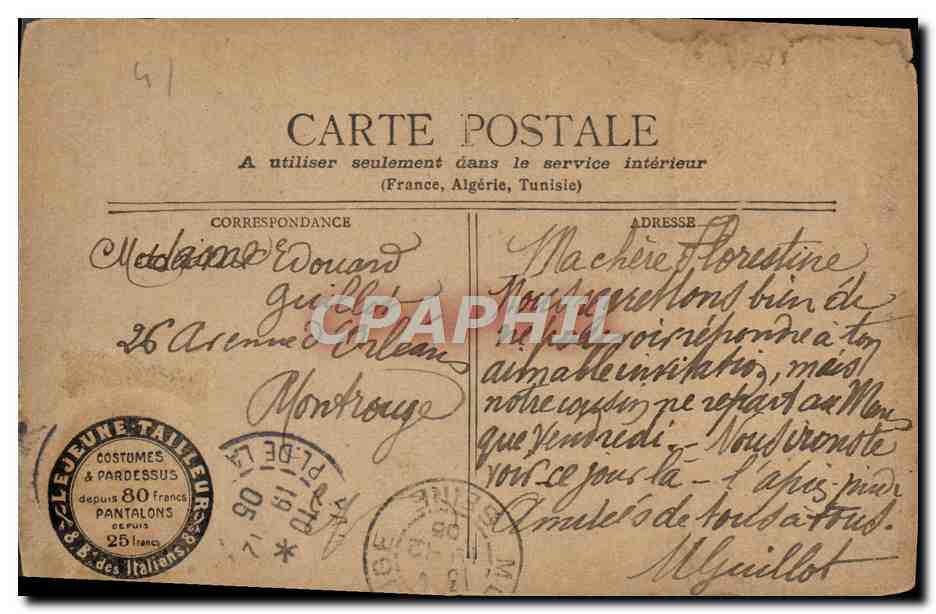 41
CARTE POSTALE
A utiliser seulement dans le service intérieur
(France, Algérie, Tunisie)
CORRESPONDANCE
Madame Edouard
Guillot
26 Avenue d'Orléans
Montrouge
ADRESSE
Ma chère Florestine
Nous regrettons bien de
ne pouvoir répondre à ton
aimable invitation, mais
notre cousin ne repart au Mans
que Vendredi - Nous irons te
voir ce jour là - l'après-midi
Amitiés de tous à tous.
MGuillot
CPAPHIL
LEJEUNE TAILLEUR
COSTUMES
& PARDESSUS
depuis 80 francs
PANTALONS
DEPUIS
25 francs
8 Bd des Italiens, 8
PL. DE LA
19
05
SEINE